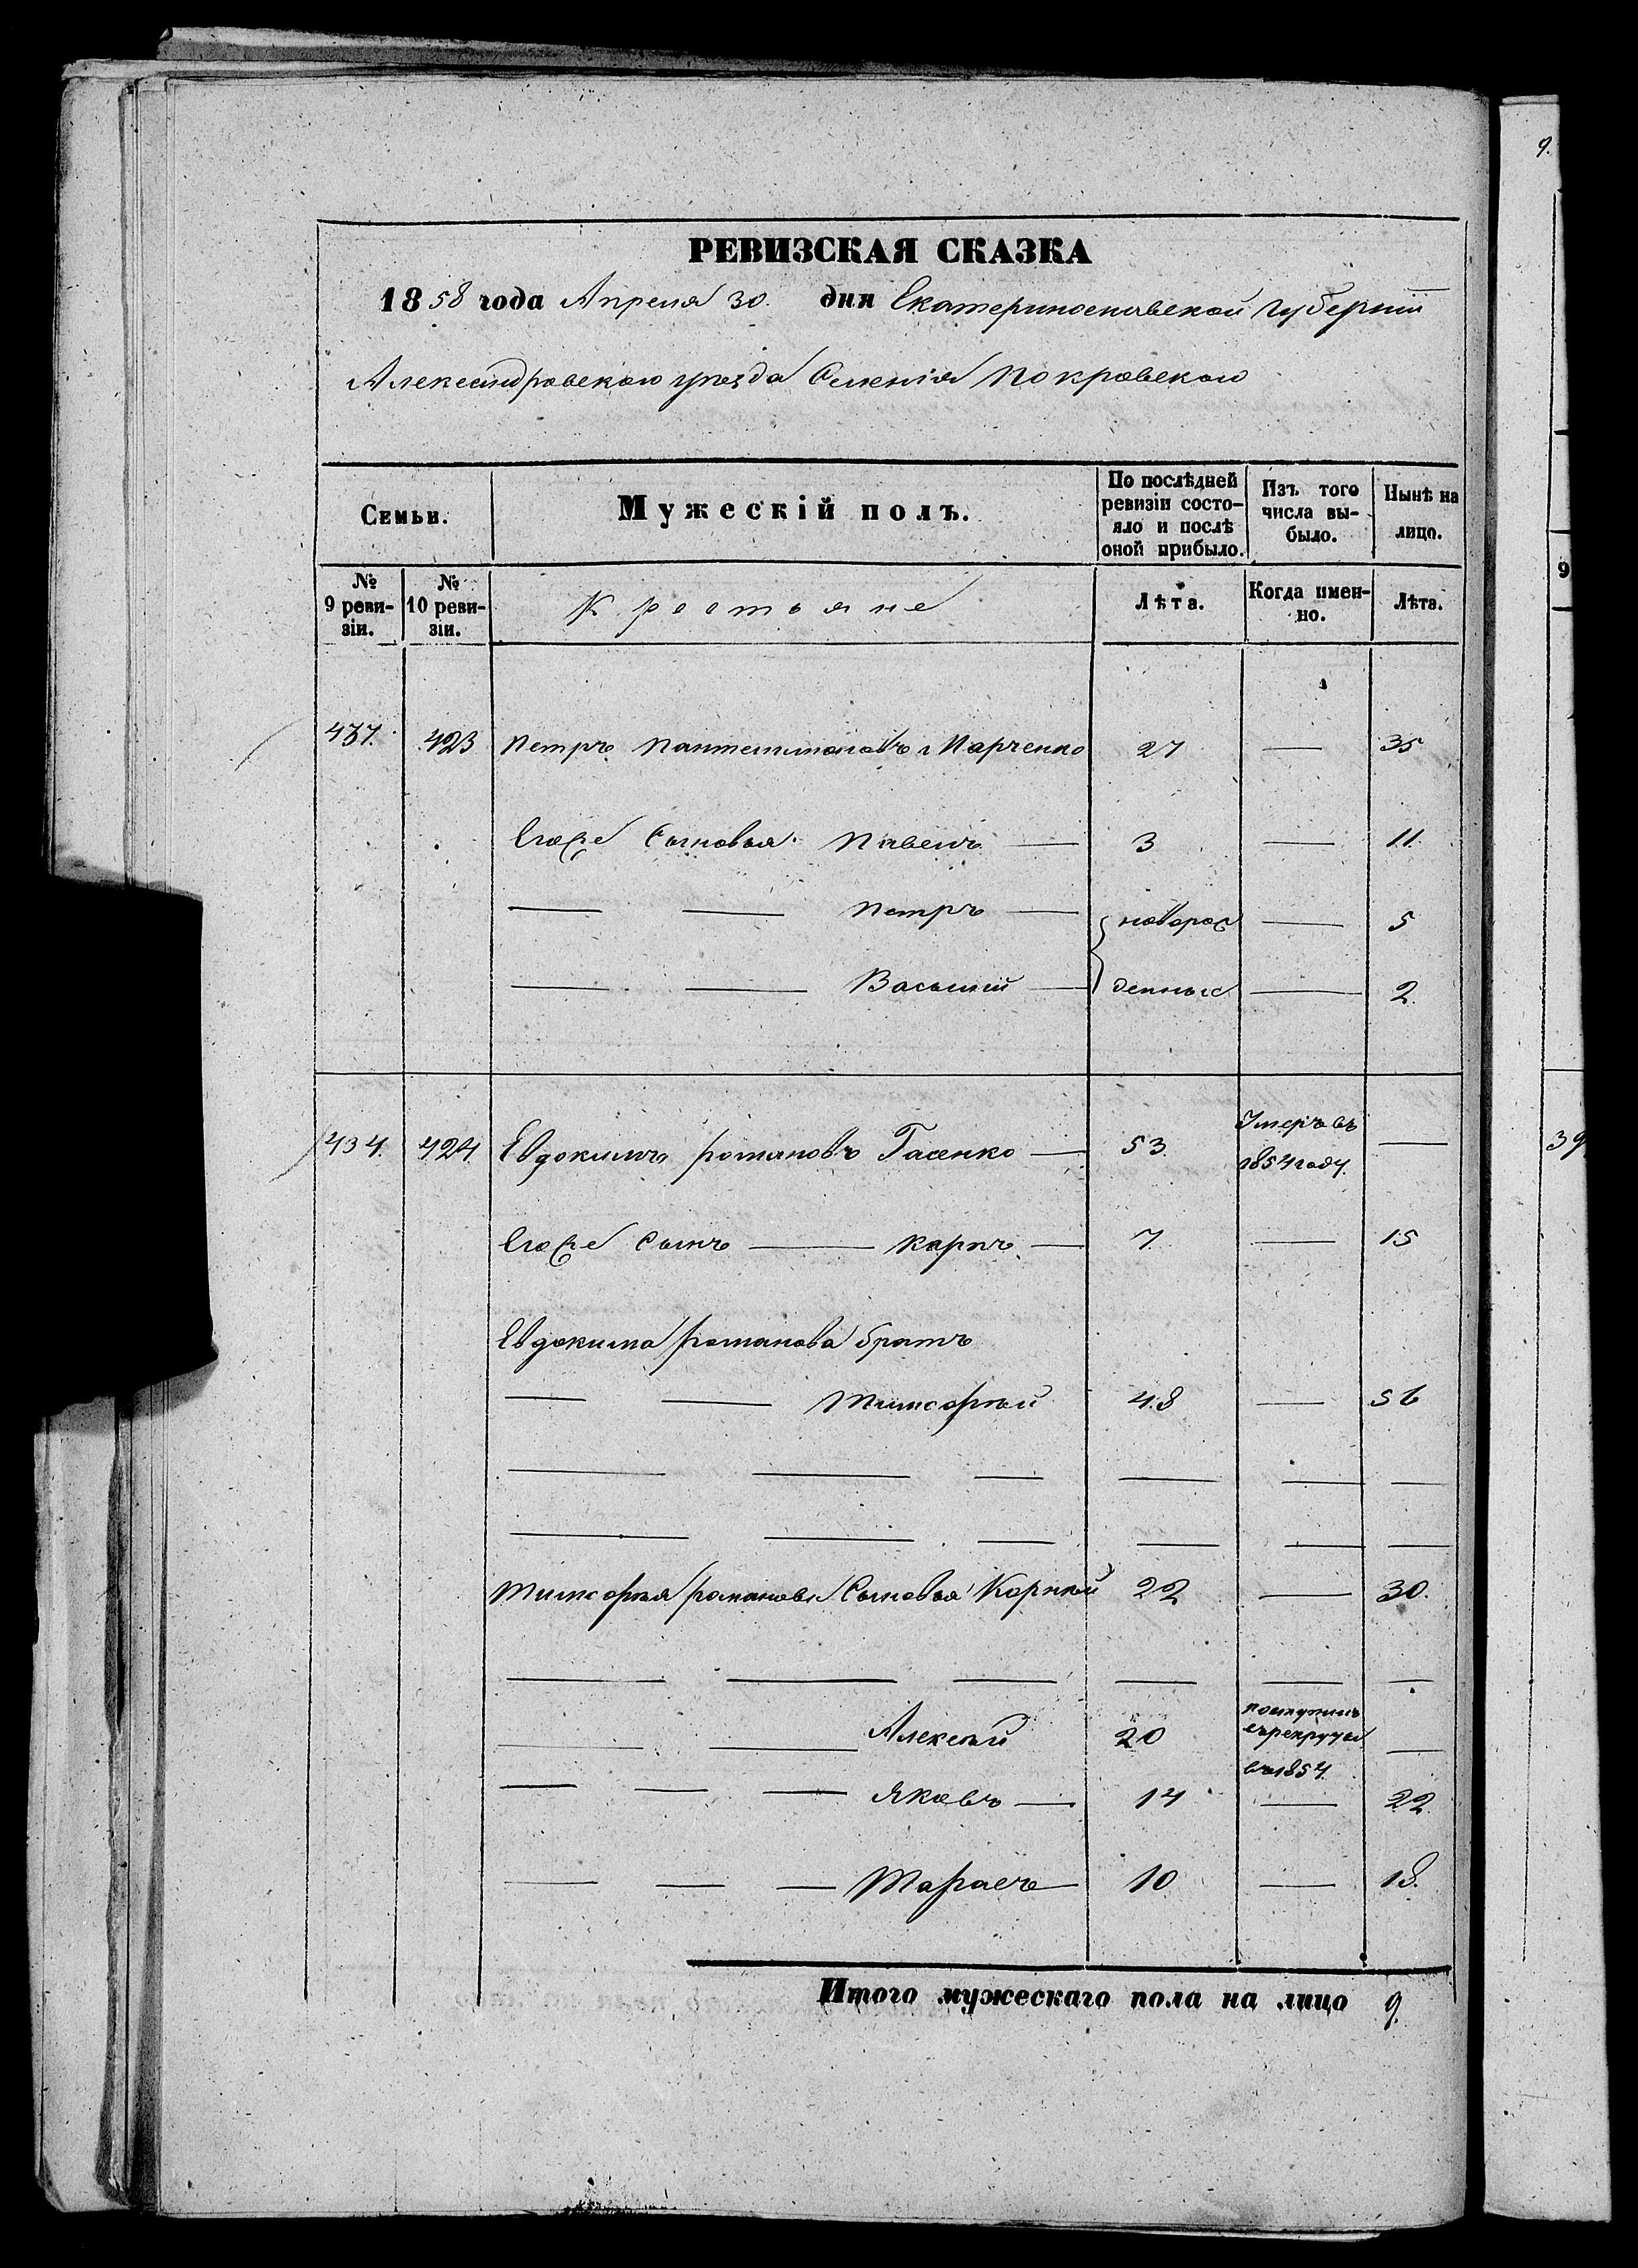 9.
РЕВИЗСКАЯ СКАЗКА
1858 года Апреля 30. дня Екатеринославской губерніи
Александровского уѣзда Селенія Покровского
Семьи.
Мужескій полъ.
По послѣдней ревизіи состо-яло и послѣ оной прибыло.
Изъ того числа вы-было.
Нынѣ на лицо.
№ 9 реви-зіи.
№ 10 реви-зіи.
Крестьяне
Лѣта.
Когда имен-но.
Лѣта.
9
437. 423 Петръ Пантелимоновъ Марченко 27 — 35
Егоже Сыновья Павелъ — 3 — 11.
— — Петръ — новорож — 5
— — Василій — денные — 2
434. 424 Евдокимъ романовъ Гасенко — 53. Умеръ въ 1854 году. —
39
Егоже Сынъ — карпъ — 7. — 15
Евдокима романова братъ
— — Тимофѣй 48 — 56
— — — — — —
— — — — — —
Тимофѣя романова Сыновья Корнѣй 22 — 30.
— — — — — —
— — Алексѣй 20 поступилъ въ рекруты въ 1854. —
— — — Яковъ — 14 — 22
— — — Тарасъ — 10 — 18.
Итого мужескаго пола на лицо 9.